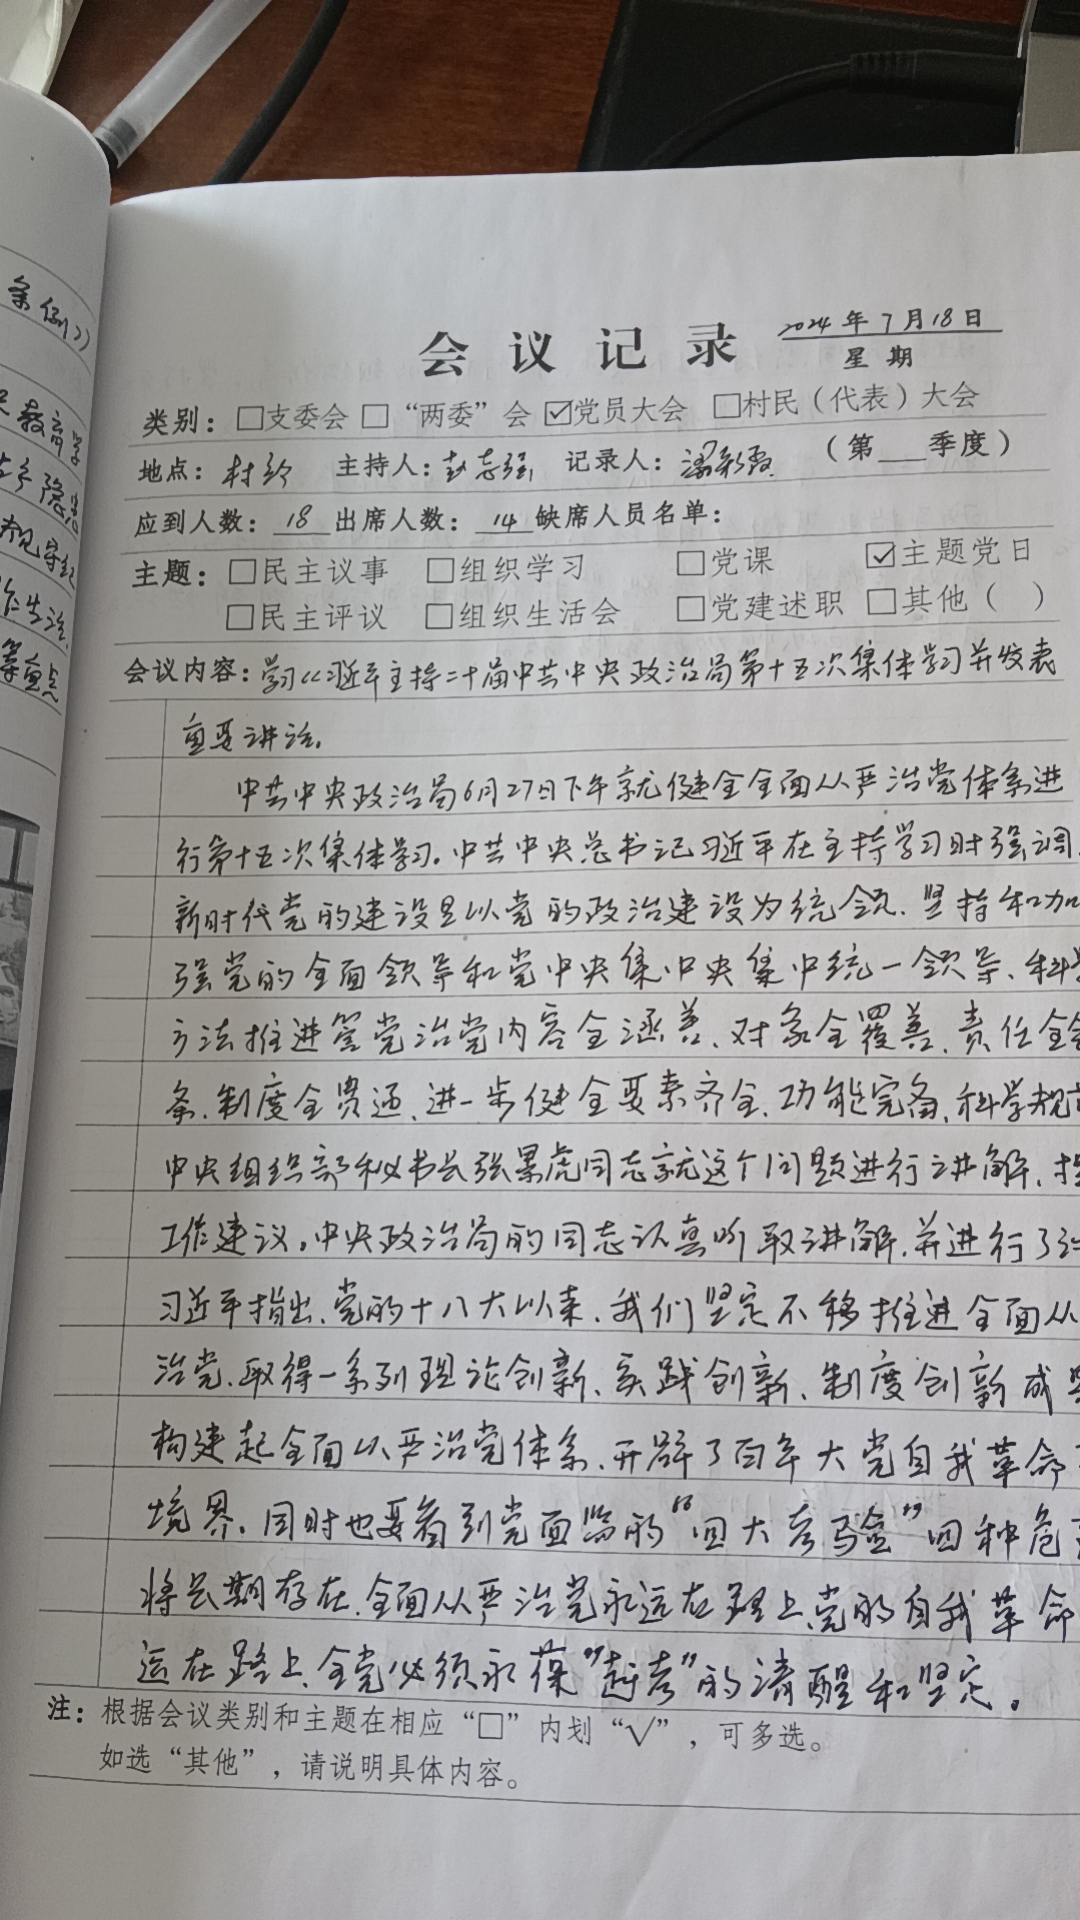 条例》
教育学
隐患
等重点
会议记录
2024年7月18日
星期
类别：□支委会 □“两委”会 ☑党员大会 □村民（代表）大会
地点：村部 主持人：赵志强 记录人：（第___季度）
应到人数：18 出席人数：14 缺席人员名单：
主题：□民主议事 □组织学习 □党课 ☑主题党日
□民主评议 □组织生活会 □党建述职 □其他（ ）
会议内容：学习《习近平主持二十届中共中央政治局第十五次集体学习并发表
重要讲话。
中共中央政治局6月27日下午就健全全面从严治党体系进
行第十五次集体学习。中共中央总书记习近平在主持学习时强调，
新时代党的建设是以党的政治建设为统领、坚持和加
强党的全面领导和党中央集中央集中统一领导、科学
方法推进管党治党内容全涵盖、对象全覆盖、责任全
条、制度全贯通、进一步健全要素齐全、功能完备、科学规范
中央组织部秘书长张黑虎同志就这个问题进行讲解，提
工作建议。中央政治局的同志认真听取讲解，并进行了讨
习近平指出、党的十八大以来、我们坚定不移推进全面从
治党、取得一系列理论创新、实践创新、制度创新成果
构建起全面从严治党体系、开辟了百年大党自我革命
境界。同时也要看到党面临的“四大考验”四种危
将长期存在、全面从严治党永远在路上、党的自我革命
远在路上、全党必须永葆“赶考”的清醒和坚定。
注：根据会议类别和主题在相应“□”内划“√”，可多选。
如选“其他”，请说明具体内容。